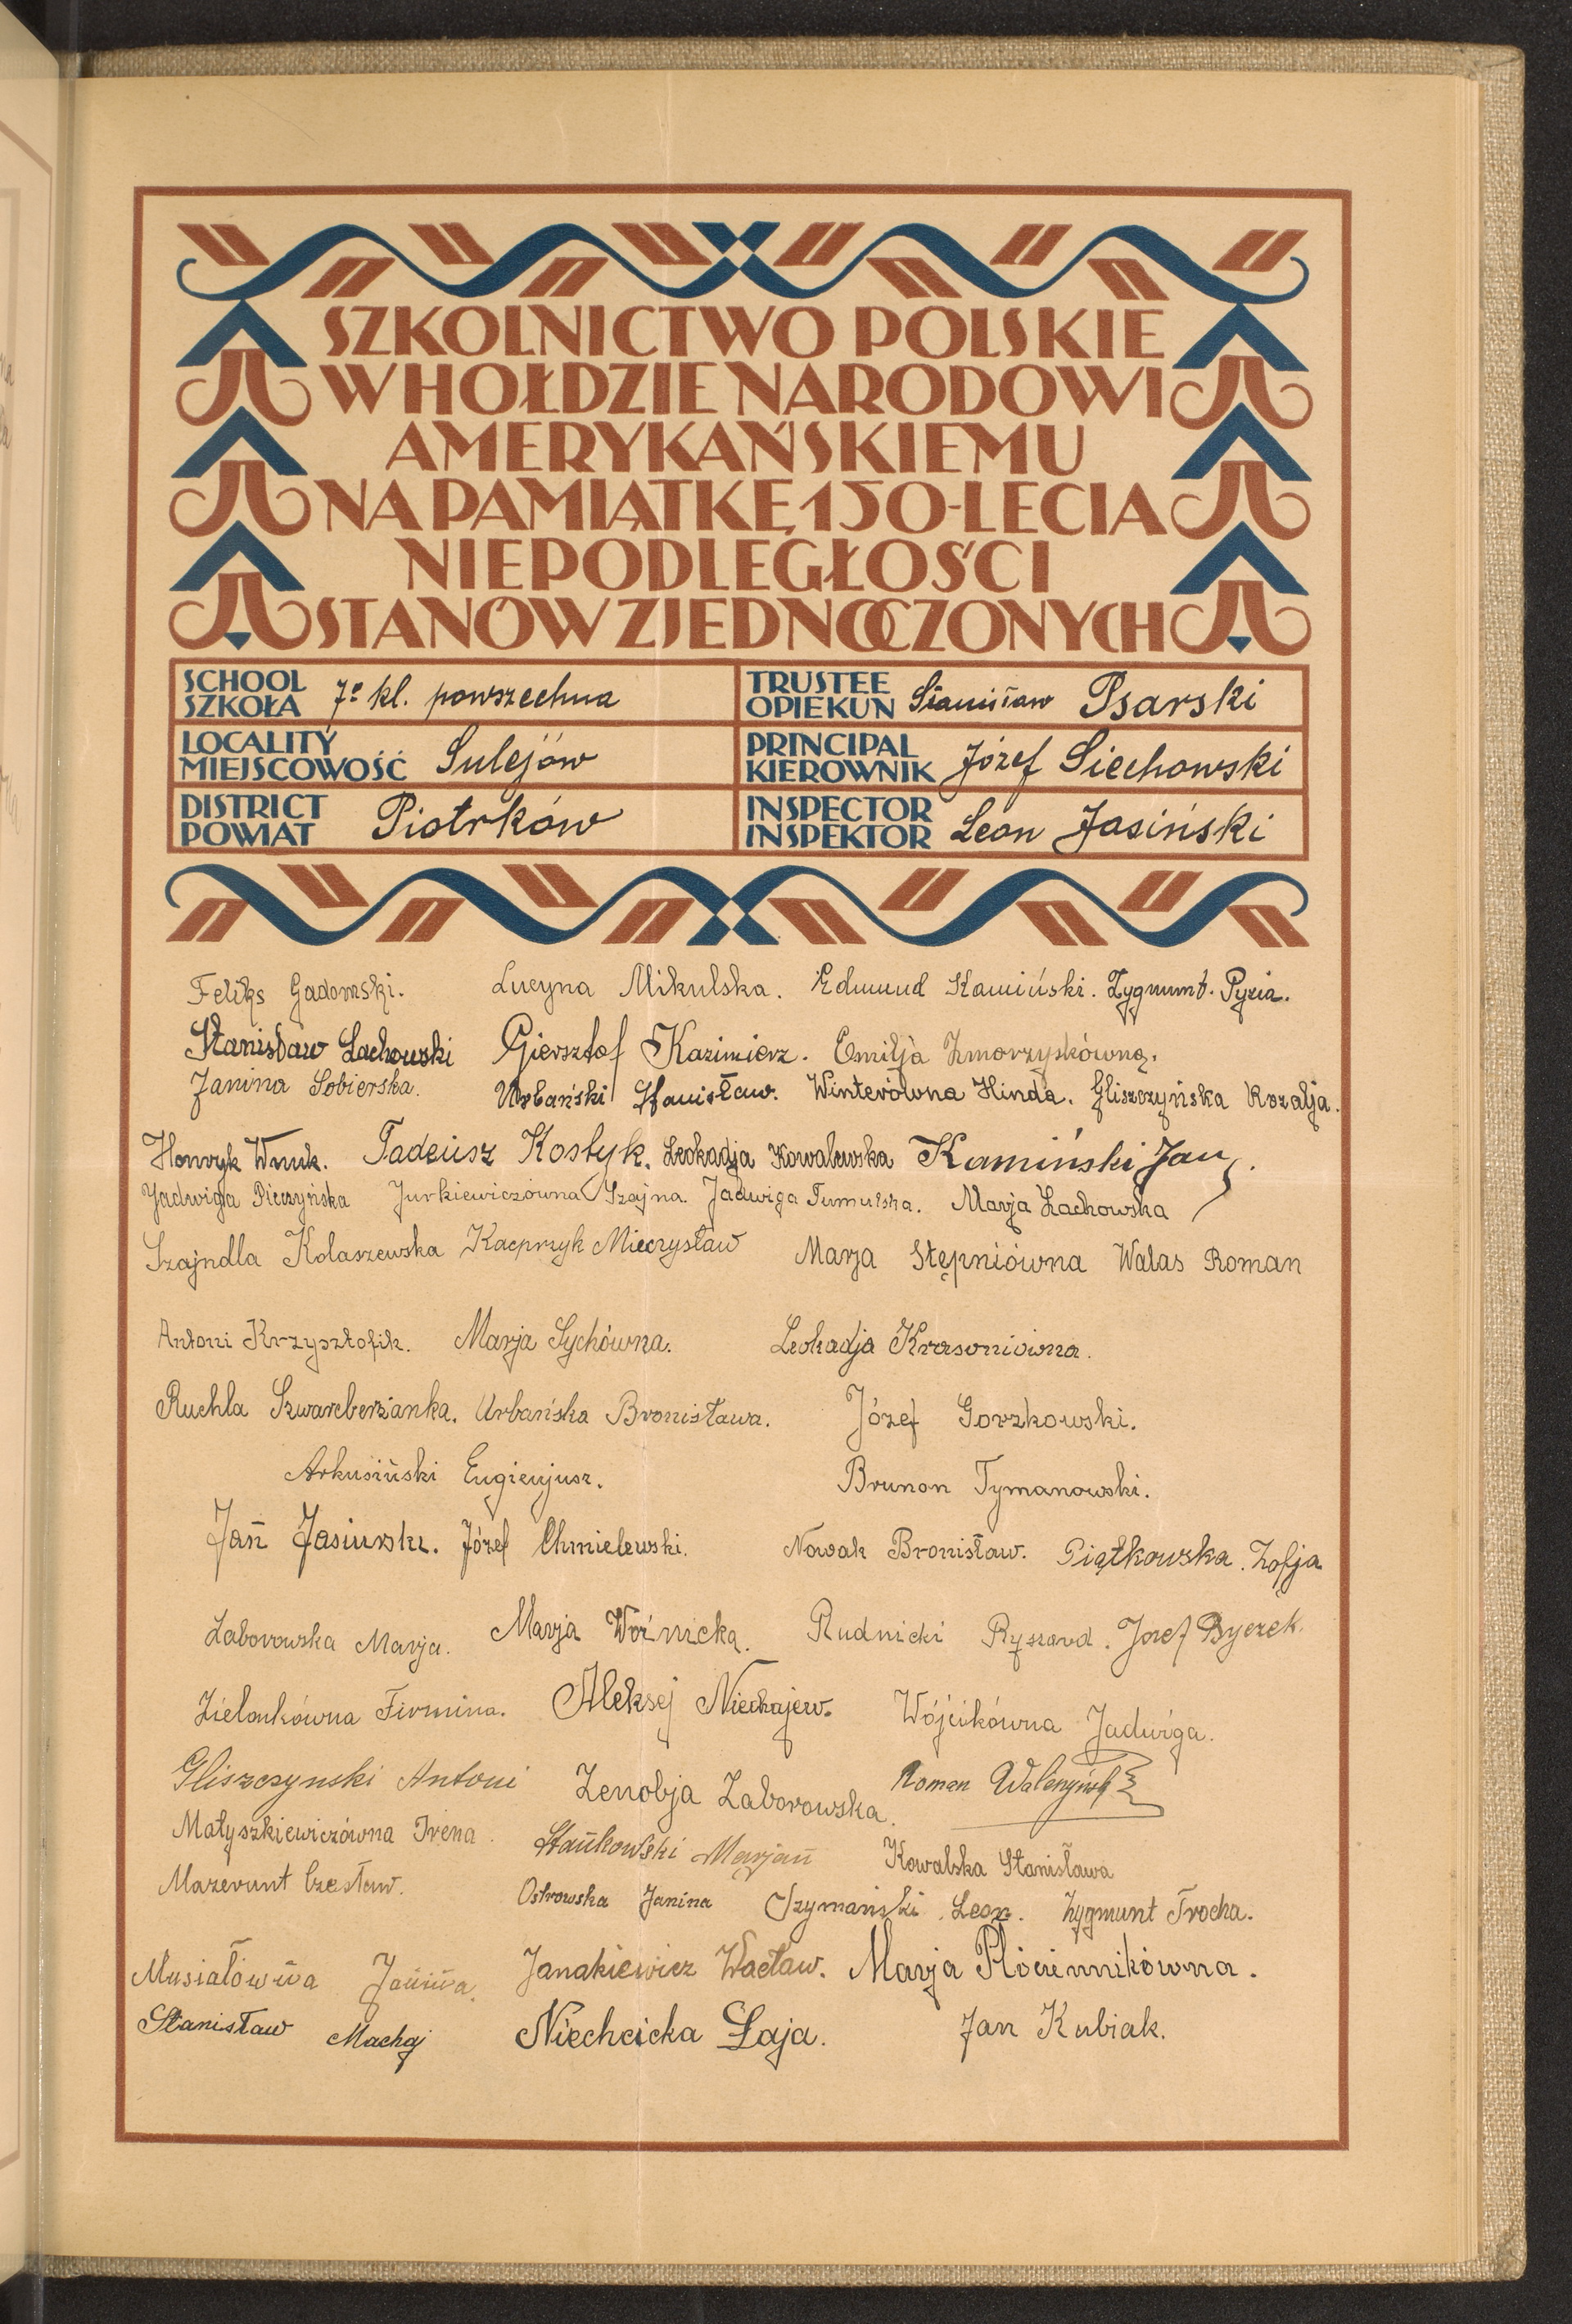 SZKOLNICTWO POLSKIE
W HOŁDZIE NARODOWI
AMERYKAŃSKIEMU
NA PAMIĄTKĘ 150-LECIA
NIEPODLEGŁOŚCI
STANÓW ZJEDNOCZONYCH
SCHOOL
SZKOŁA 7º kl. powszechna
TRUSTEE
OPIEKUN Stanisław Psarski
LOCALITY
MIEJSCOWOŚĆ Sulejów
PRINCIPAL
KIEROWNIK Józef Siechowski
DISTRICT
POWIAT Piotrków
INSPECTOR
INSPEKTOR Leon Jasiński
Feliks Gadomski. Lucyna Mikulska. Edmund Kamiński. Zygmunt. Pyzia.
Stanisław Lachowski Giersztof Kazimierz. Emilja Zmorzyskówna.
Janina Sobierska. Urbański Stanisław. Winterówna Hinda. Gliszczyńska Rozalja.
Henryk Wnuk. Tadeusz Kostyk. Leokadja Kowalewska Kamiński Jan.
Jadwiga Pieczyńska Jurkiewiczówna Szajna. Jadwiga Tumulska. Marja Lachowska
Szajndla Kolaszewska Kacprzyk Mieczysław Marja Stępniówna Walas Roman
Antoni Krzysztofik. Marja Sychówna. Leokadja Krasoniówna.
Ruchla Szwarcberżanka. Urbańska Bronisława. Józef Gorzkowski.
Arkusiński Eugienjusz. Brunon Tymanowski.
Jan Jasiński. Józef Chmielewski. Nowak Bronisław. Piątkowska. Zofja
Zaborowska Marja. Marja Woźnicka. Rudnicki Ryszard. Józef Byczek.
Zielonkówna Firmina. Aleksej Niechajew. Wójcikówna Jadwiga.
Gliszczynski Antoni Zenobja Zaborowska. Roman
Matyszkiewiczówna Irena. Stańkowski Marjan Kowalska Stanisława
Mazerunt Czesław. Ostrowska Janina Szymański Leon. Zygmunt Trocha.
Musiałówna Janina. Janakiewicz Wacław. Marja Płóciennikówna.
Stanisław Machaj Niechcicka Łaja. Jan Kubiak.